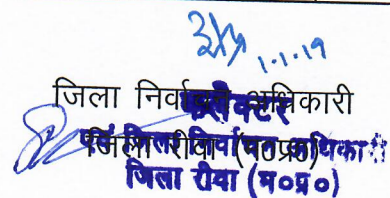 1.1.19
जिला निर्वाचन अधिकारी
कलेक्टर
जिला रीवा (म०प्र०)
एवं जिला निर्वाचन अधिकारी
जिला रीवा (म०प्र०)